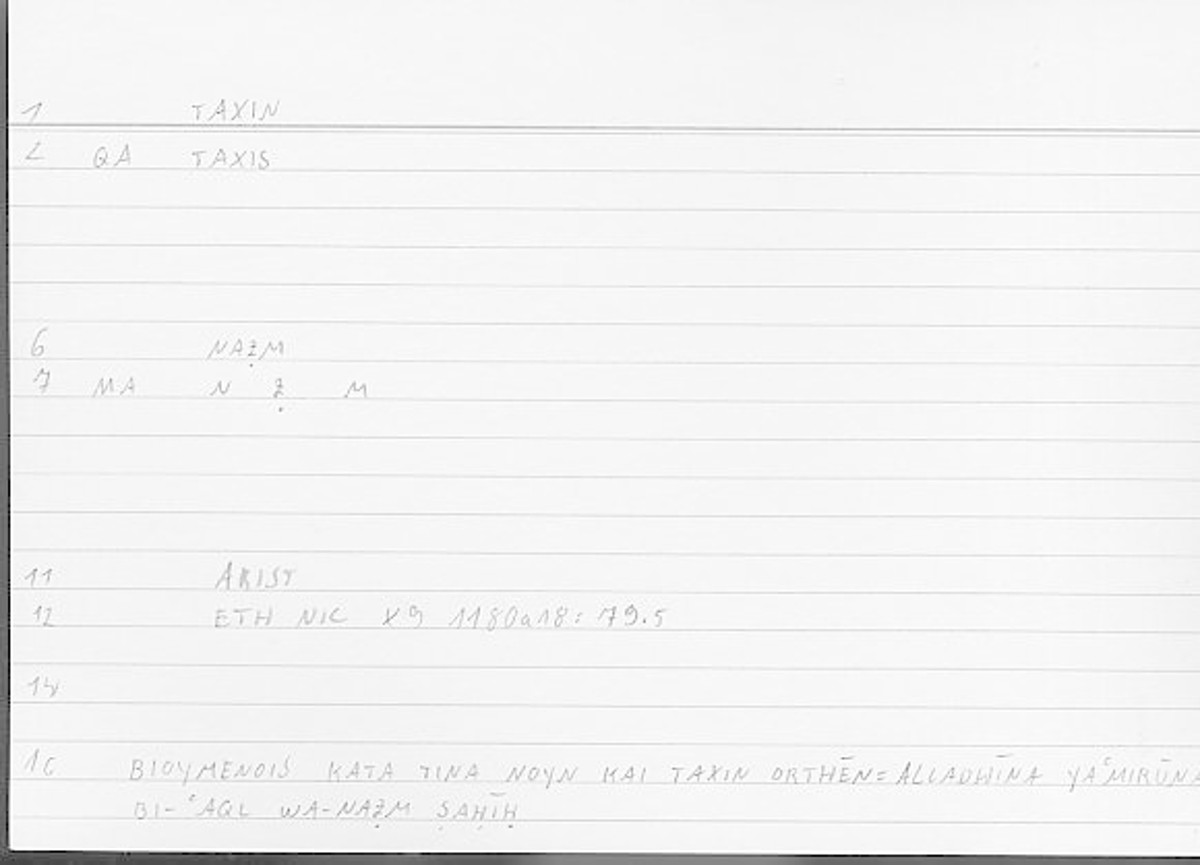 1 TAXIN
2 QA TAXIS
6 NAẒM
7 MA N Ẓ M
11 ARIST
12 ETH NIC X9 1180a18: 79.5
14
1C BIOYMENOIS KATA TINA NOYN KAI TAXIN ORTHĒN=ALLADHĪNA YAʿMIRŪNA
BI-ʿAQL WA-NAẒM ṢAḤĪḤ